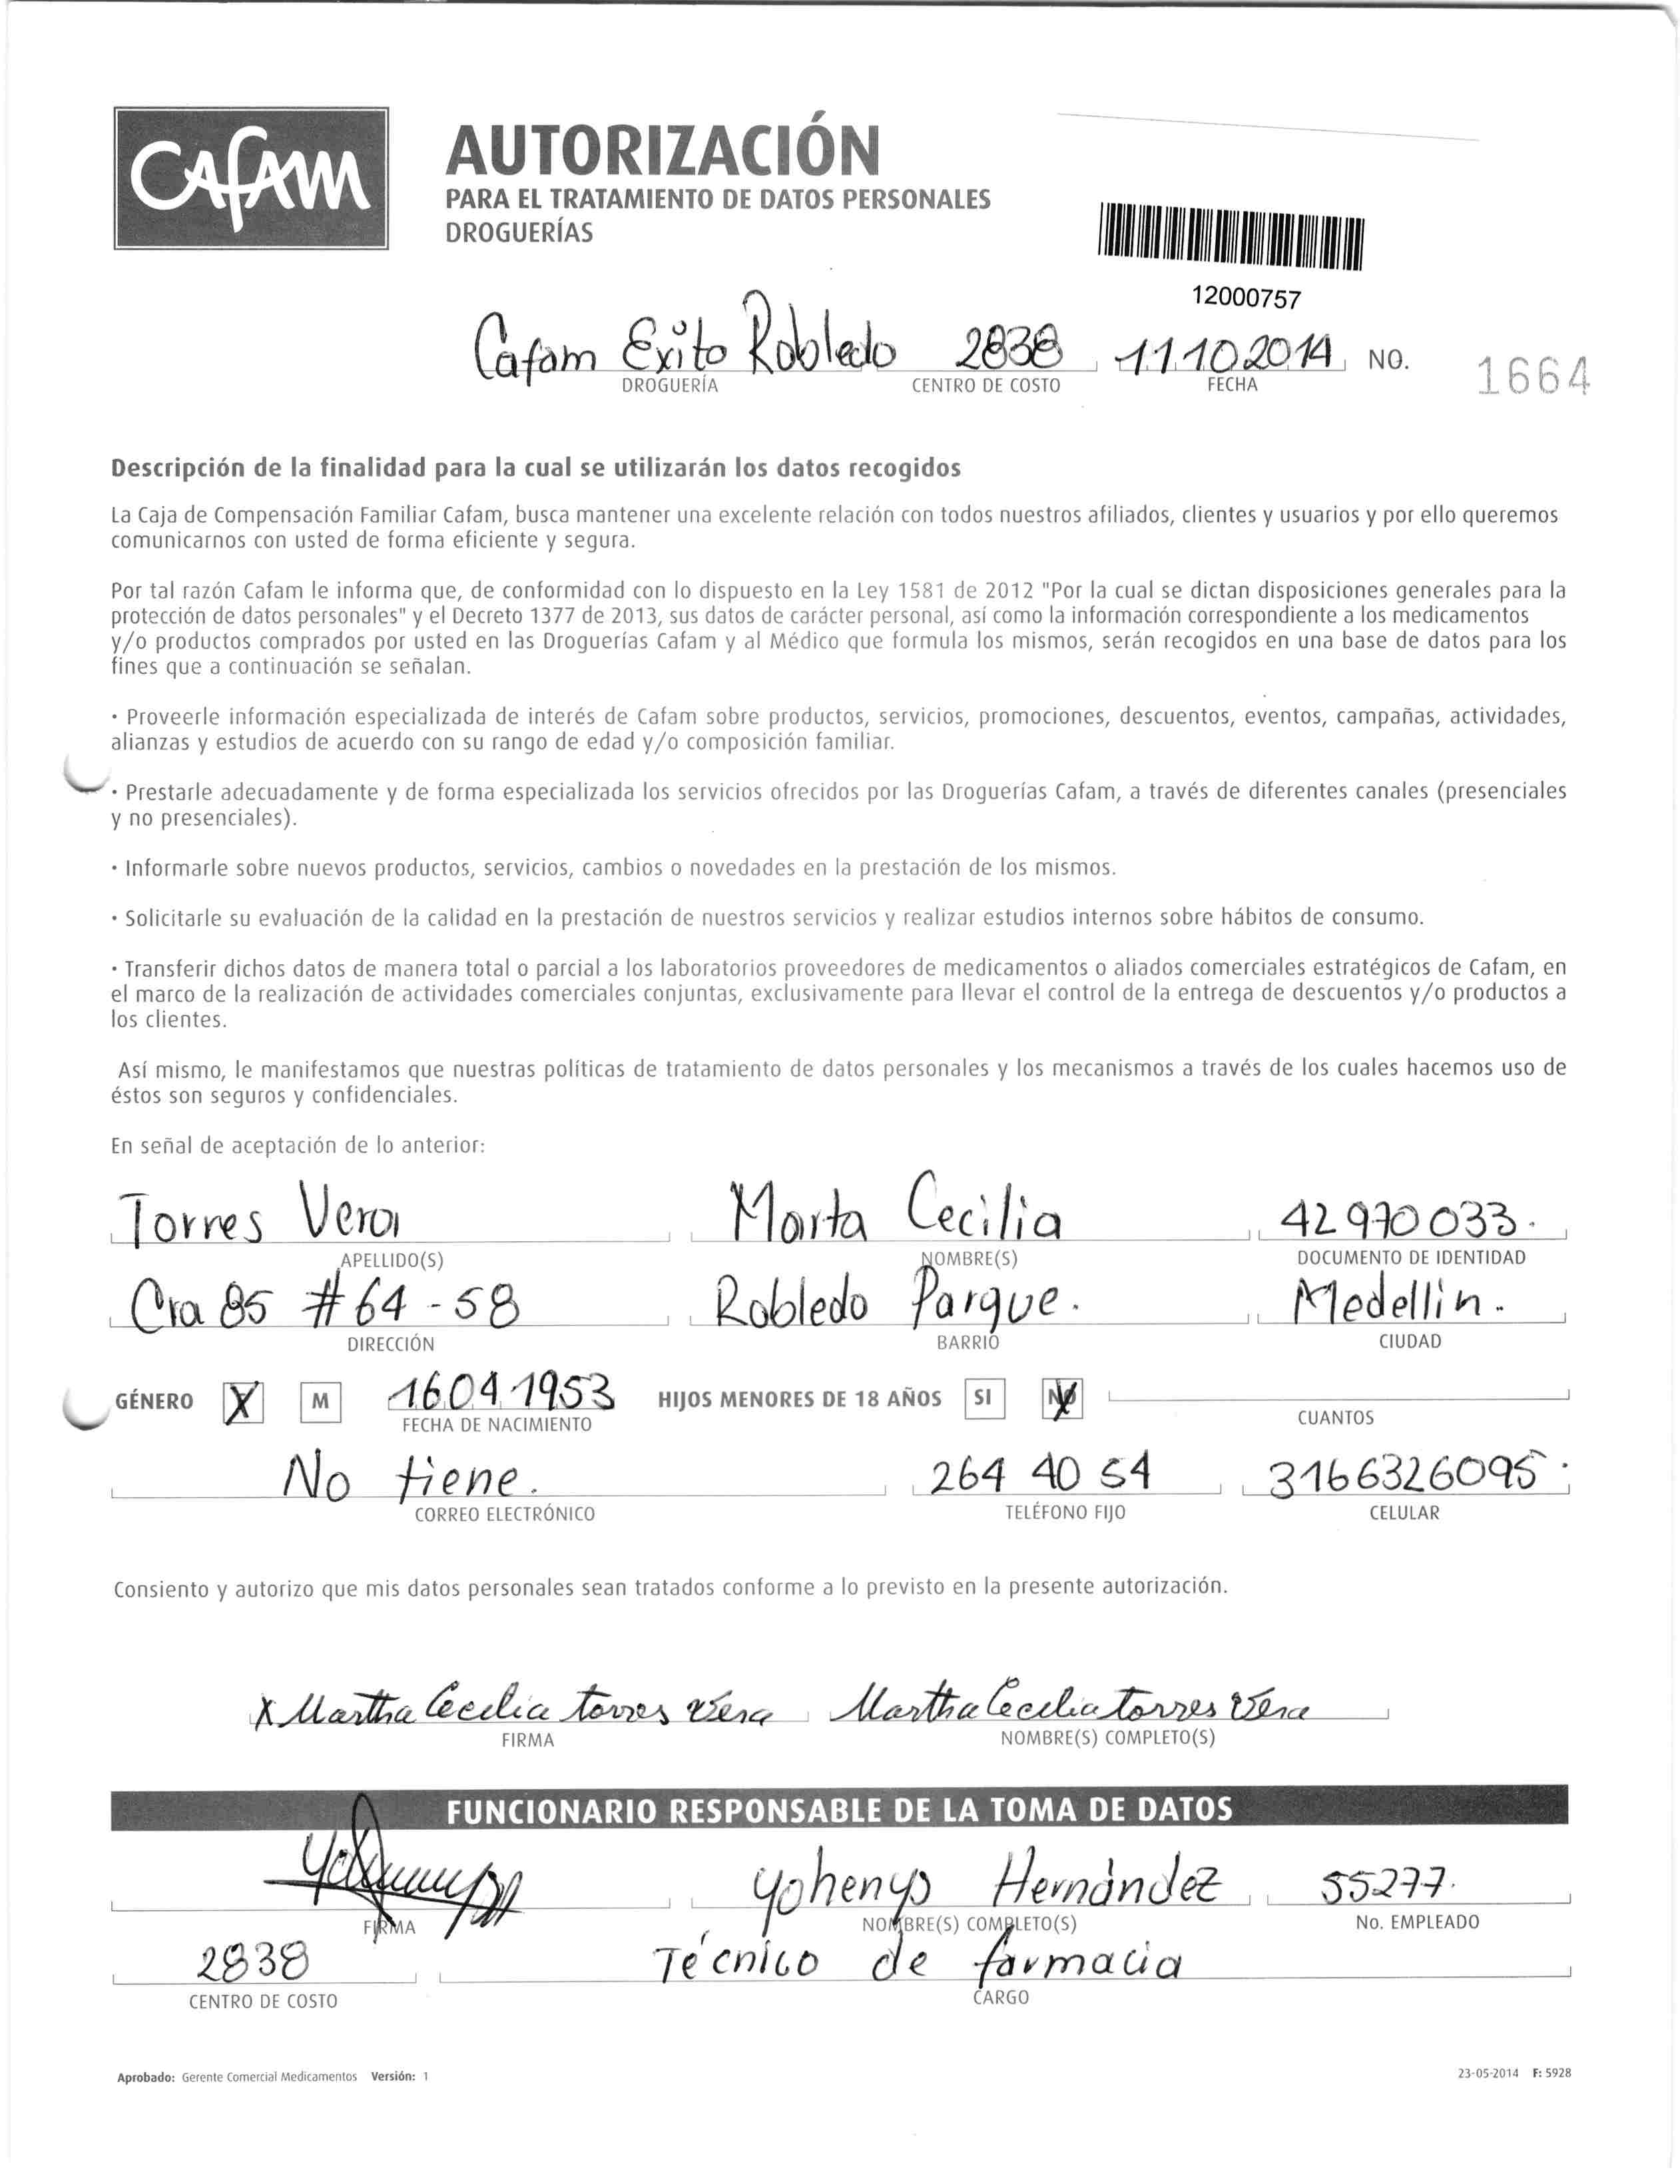 Cafam
AUTORIZACIÓN
PARA EL TRATAMIENTO DE DATOS PERSONALES
DROGUERÍAS
12000757
Cafam Exito Robledo 2838 11 10 2014 NO. 1664
DROGUERÍA CENTRO DE COSTO FECHA
Descripción de la finalidad para la cual se utilizarán los datos recogidos
La Caja de Compensación Familiar Cafam, busca mantener una excelente relación con todos nuestros afiliados, clientes y usuarios y por ello queremos
comunicarnos con usted de forma eficiente y segura.
Por tal razón Cafam le informa que, de conformidad con lo dispuesto en la Ley 1581 de 2012 "Por la cual se dictan disposiciones generales para la
protección de datos personales" y el Decreto 1377 de 2013, sus datos de carácter personal, así como la información correspondiente a los medicamentos
y/o productos comprados por usted en las Droguerías Cafam y al Médico que formula los mismos, serán recogidos en una base de datos para los
fines que a continuación se señalan.
· Proveerle información especializada de interés de Cafam sobre productos, servicios, promociones, descuentos, eventos, campañas, actividades,
alianzas y estudios de acuerdo con su rango de edad y/o composición familiar.
· Prestarle adecuadamente y de forma especializada los servicios ofrecidos por las Droguerías Cafam, a través de diferentes canales (presenciales
y no presenciales).
· Informarle sobre nuevos productos, servicios, cambios o novedades en la prestación de los mismos.
· Solicitarle su evaluación de la calidad en la prestación de nuestros servicios y realizar estudios internos sobre hábitos de consumo.
· Transferir dichos datos de manera total o parcial a los laboratorios proveedores de medicamentos o aliados comerciales estratégicos de Cafam, en
el marco de la realización de actividades comerciales conjuntas, exclusivamente para llevar el control de la entrega de descuentos y/o productos a
los clientes.
Así mismo, le manifestamos que nuestras políticas de tratamiento de datos personales y los mecanismos a través de los cuales hacemos uso de
éstos son seguros y confidenciales.
En señal de aceptación de lo anterior:
Torres Vera Marta Cecilia 42970033.
APELLIDO(S) NOMBRE(S) DOCUMENTO DE IDENTIDAD
Cra 85 #64-58 Robledo Parque. Medellin.
DIRECCIÓN BARRIO CIUDAD
GÉNERO X M 16.04.1953 HIJOS MENORES DE 18 AÑOS SI NO
FECHA DE NACIMIENTO CUANTOS
No tiene. 264 40 54 3166326095.
CORREO ELECTRÓNICO TELÉFONO FIJO CELULAR
Consiento y autorizo que mis datos personales sean tratados conforme a lo previsto en la presente autorización.
X Martha Cecilia torres Vera Martha Cecilia torres Vera
FIRMA NOMBRE(S) COMPLETO(S)
FUNCIONARIO RESPONSABLE DE LA TOMA DE DATOS
Yohenys Hernández 55277.
FIRMA NOMBRE(S) COMPLETO(S) No. EMPLEADO
2838 Técnico de farmacia
CENTRO DE COSTO CARGO
Aprobado: Gerente Comercial Medicamentos Versión: 1 23-05-2014 F: 5928